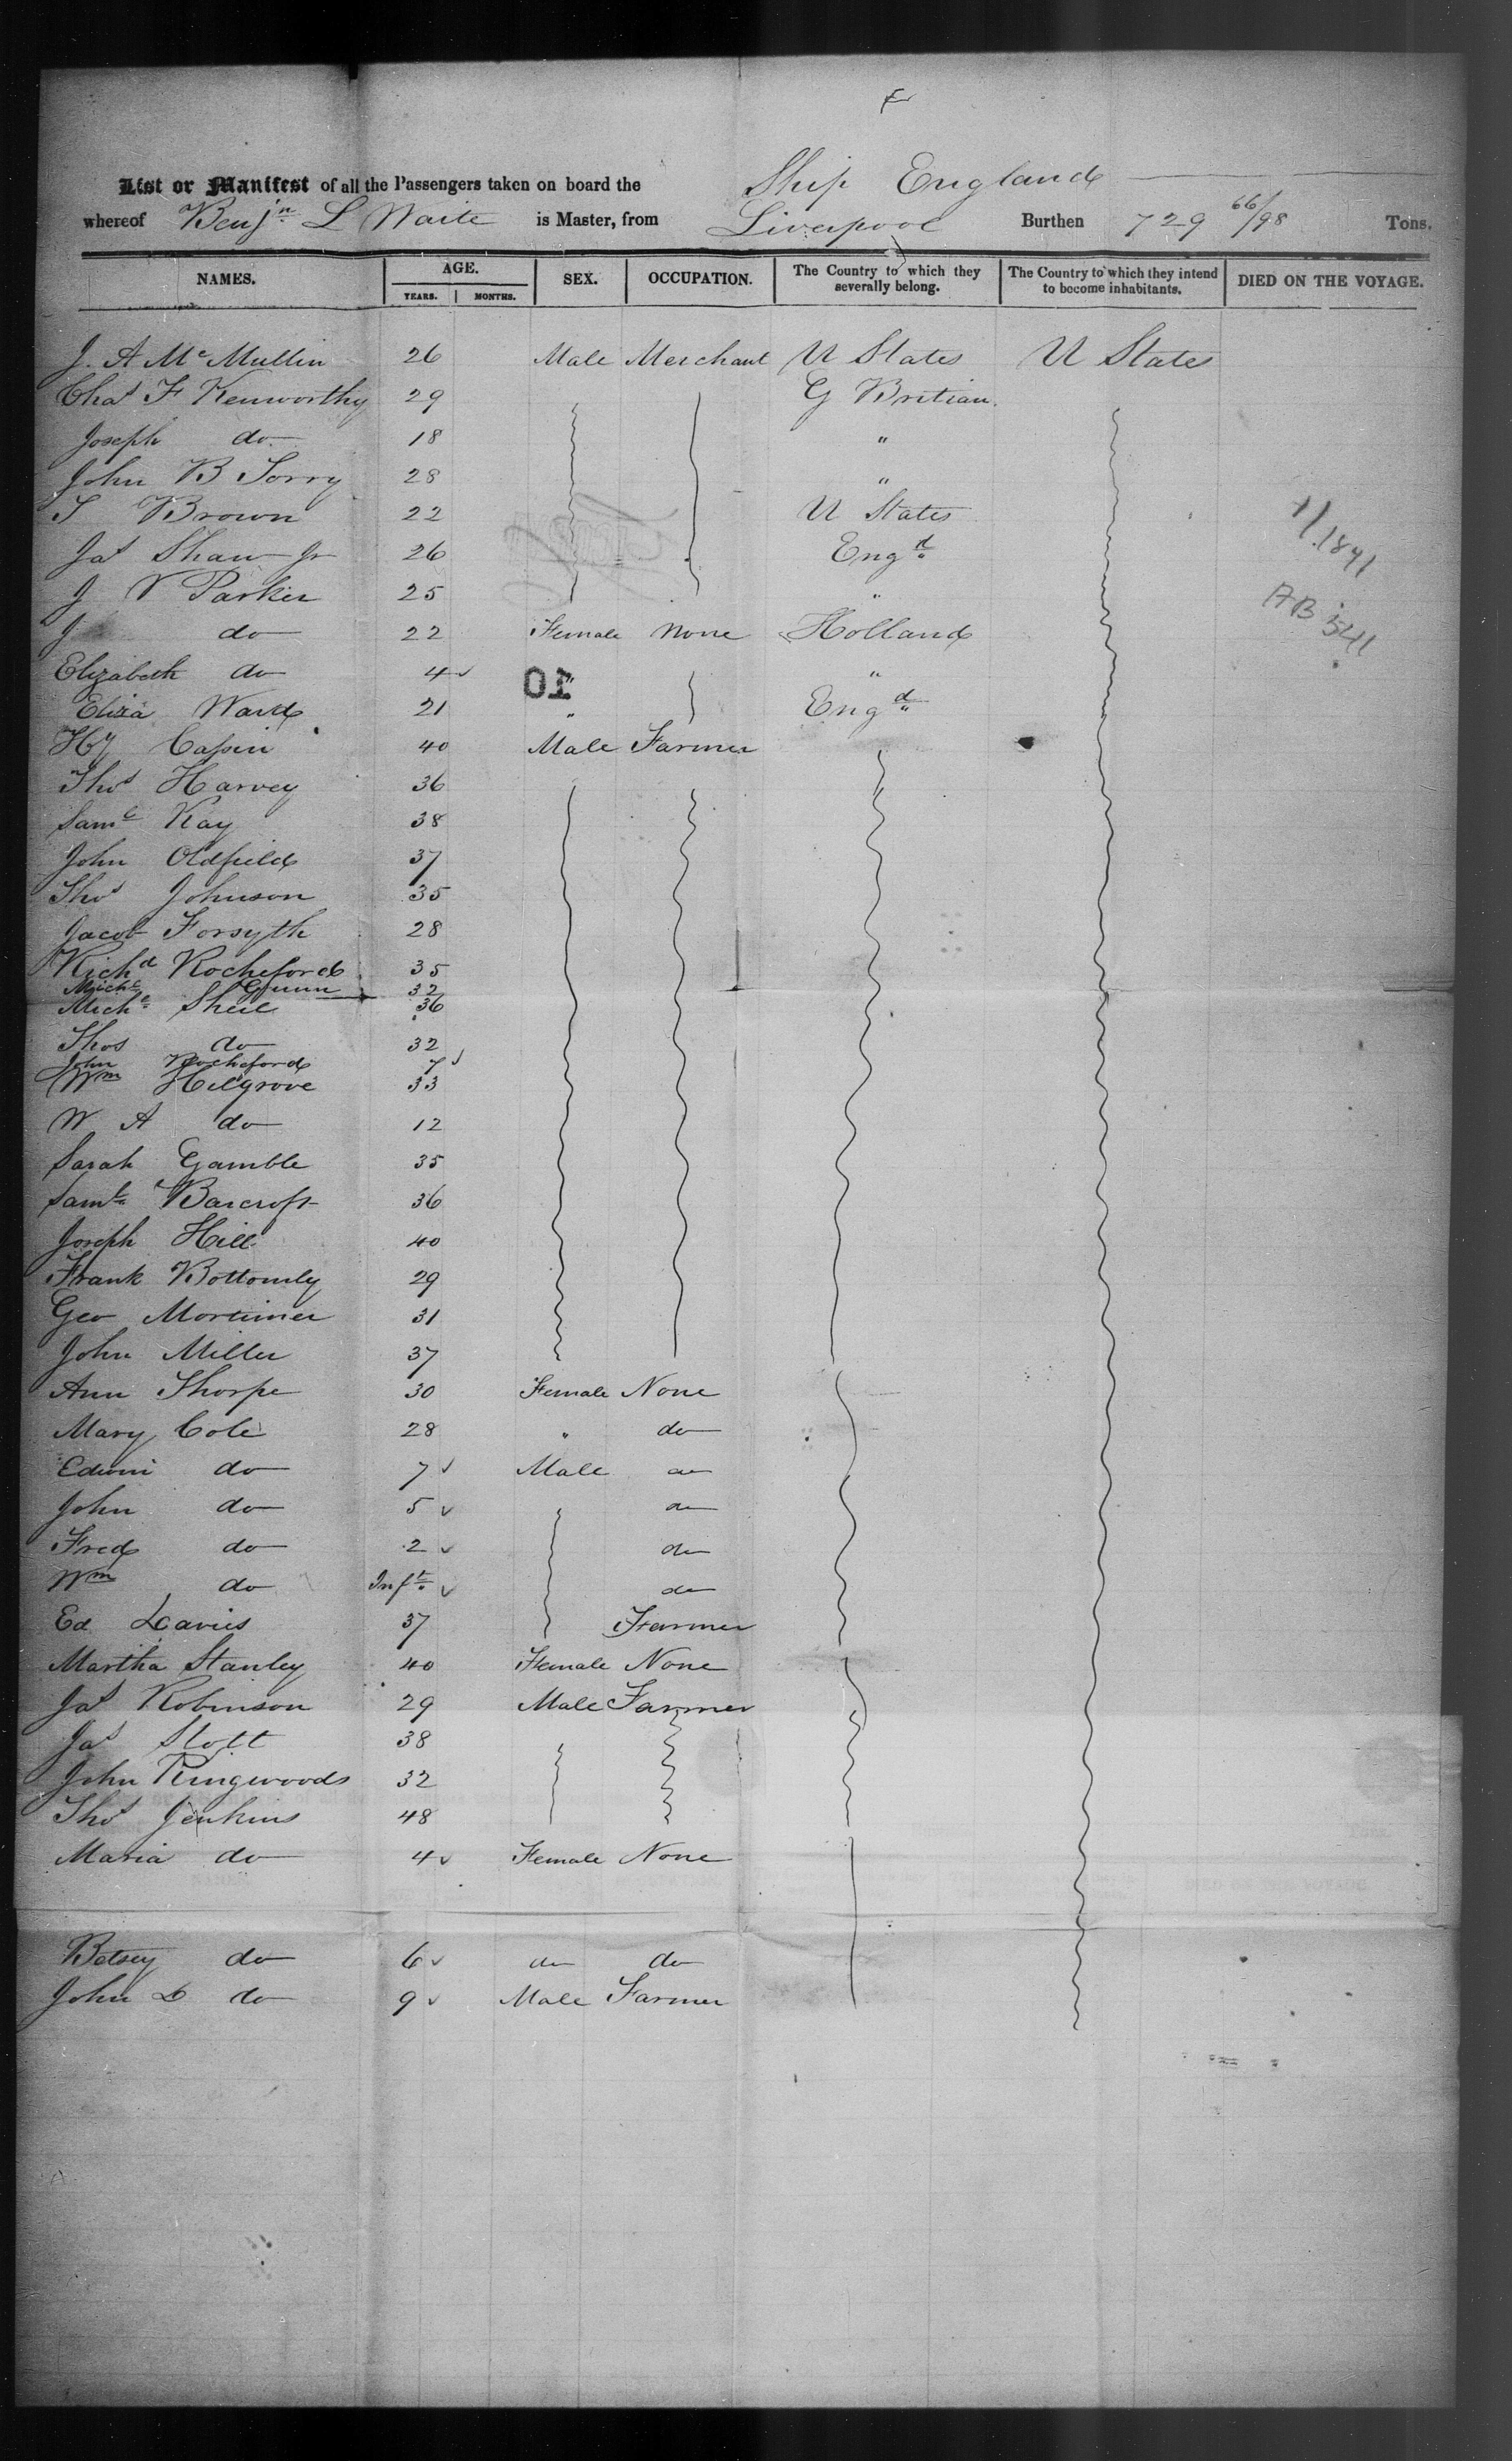 List or Manifest of all the Passengers taken on board the Ship England
whereof Benjn L Waite is Master, from Liverpool Burthen 729 66/98 Tons.
NAMES. AGE. SEX. OCCUPATION. The Country to which they severally belong. The Country to which they intend to become inhabitants. DIED ON THE VOYAGE.
YEARS. MONTHS.
J. A McMullin 26 Male Merchant U States U States
Chas F Kenworthy 29 G Britian.
Joseph do 18 "
John B Torry 28 "
S Brown 22 U States
Jas Shaw Jr 26 Engd
J V Parker 25 "
J do 22 Female None Holland
Elizabeth do 4 " "
Eliza Ward 21 " Engd
Hy Cassin 40 Male Farmer
Thos Harvey 36
Saml Kay 38
John Oldfield 37
Thos Johnson 35
Jacob Forsyth 28
Richd Rocheford 35
Michl Gunn 32
Michl Sheil 36
Thos do 32
John Rocheford 7
Wm Hilgrove 33
W A do 12
Sarah Gamble 35
Saml Barcroft 36
Joseph Hill 40
Frank Bottomly 29
Geo Mortimer 31
John Miller 37
Ann Thorpe 30 Female None
Mary Cole 28 " do
Edwin do 7 Male do
John do 5 do
Fred do 2 do
Wm do Inft do
Ed Davies 37 Farmer
Martha Stanley 40 Female None
Jas Robinson 29 Male Farmer
Jas Stott 38
John Ringwoods 32
Thos Jenkins 48
Maria do 4 Female None
Betsey do 6 do do
John D do 9 Male Farmer